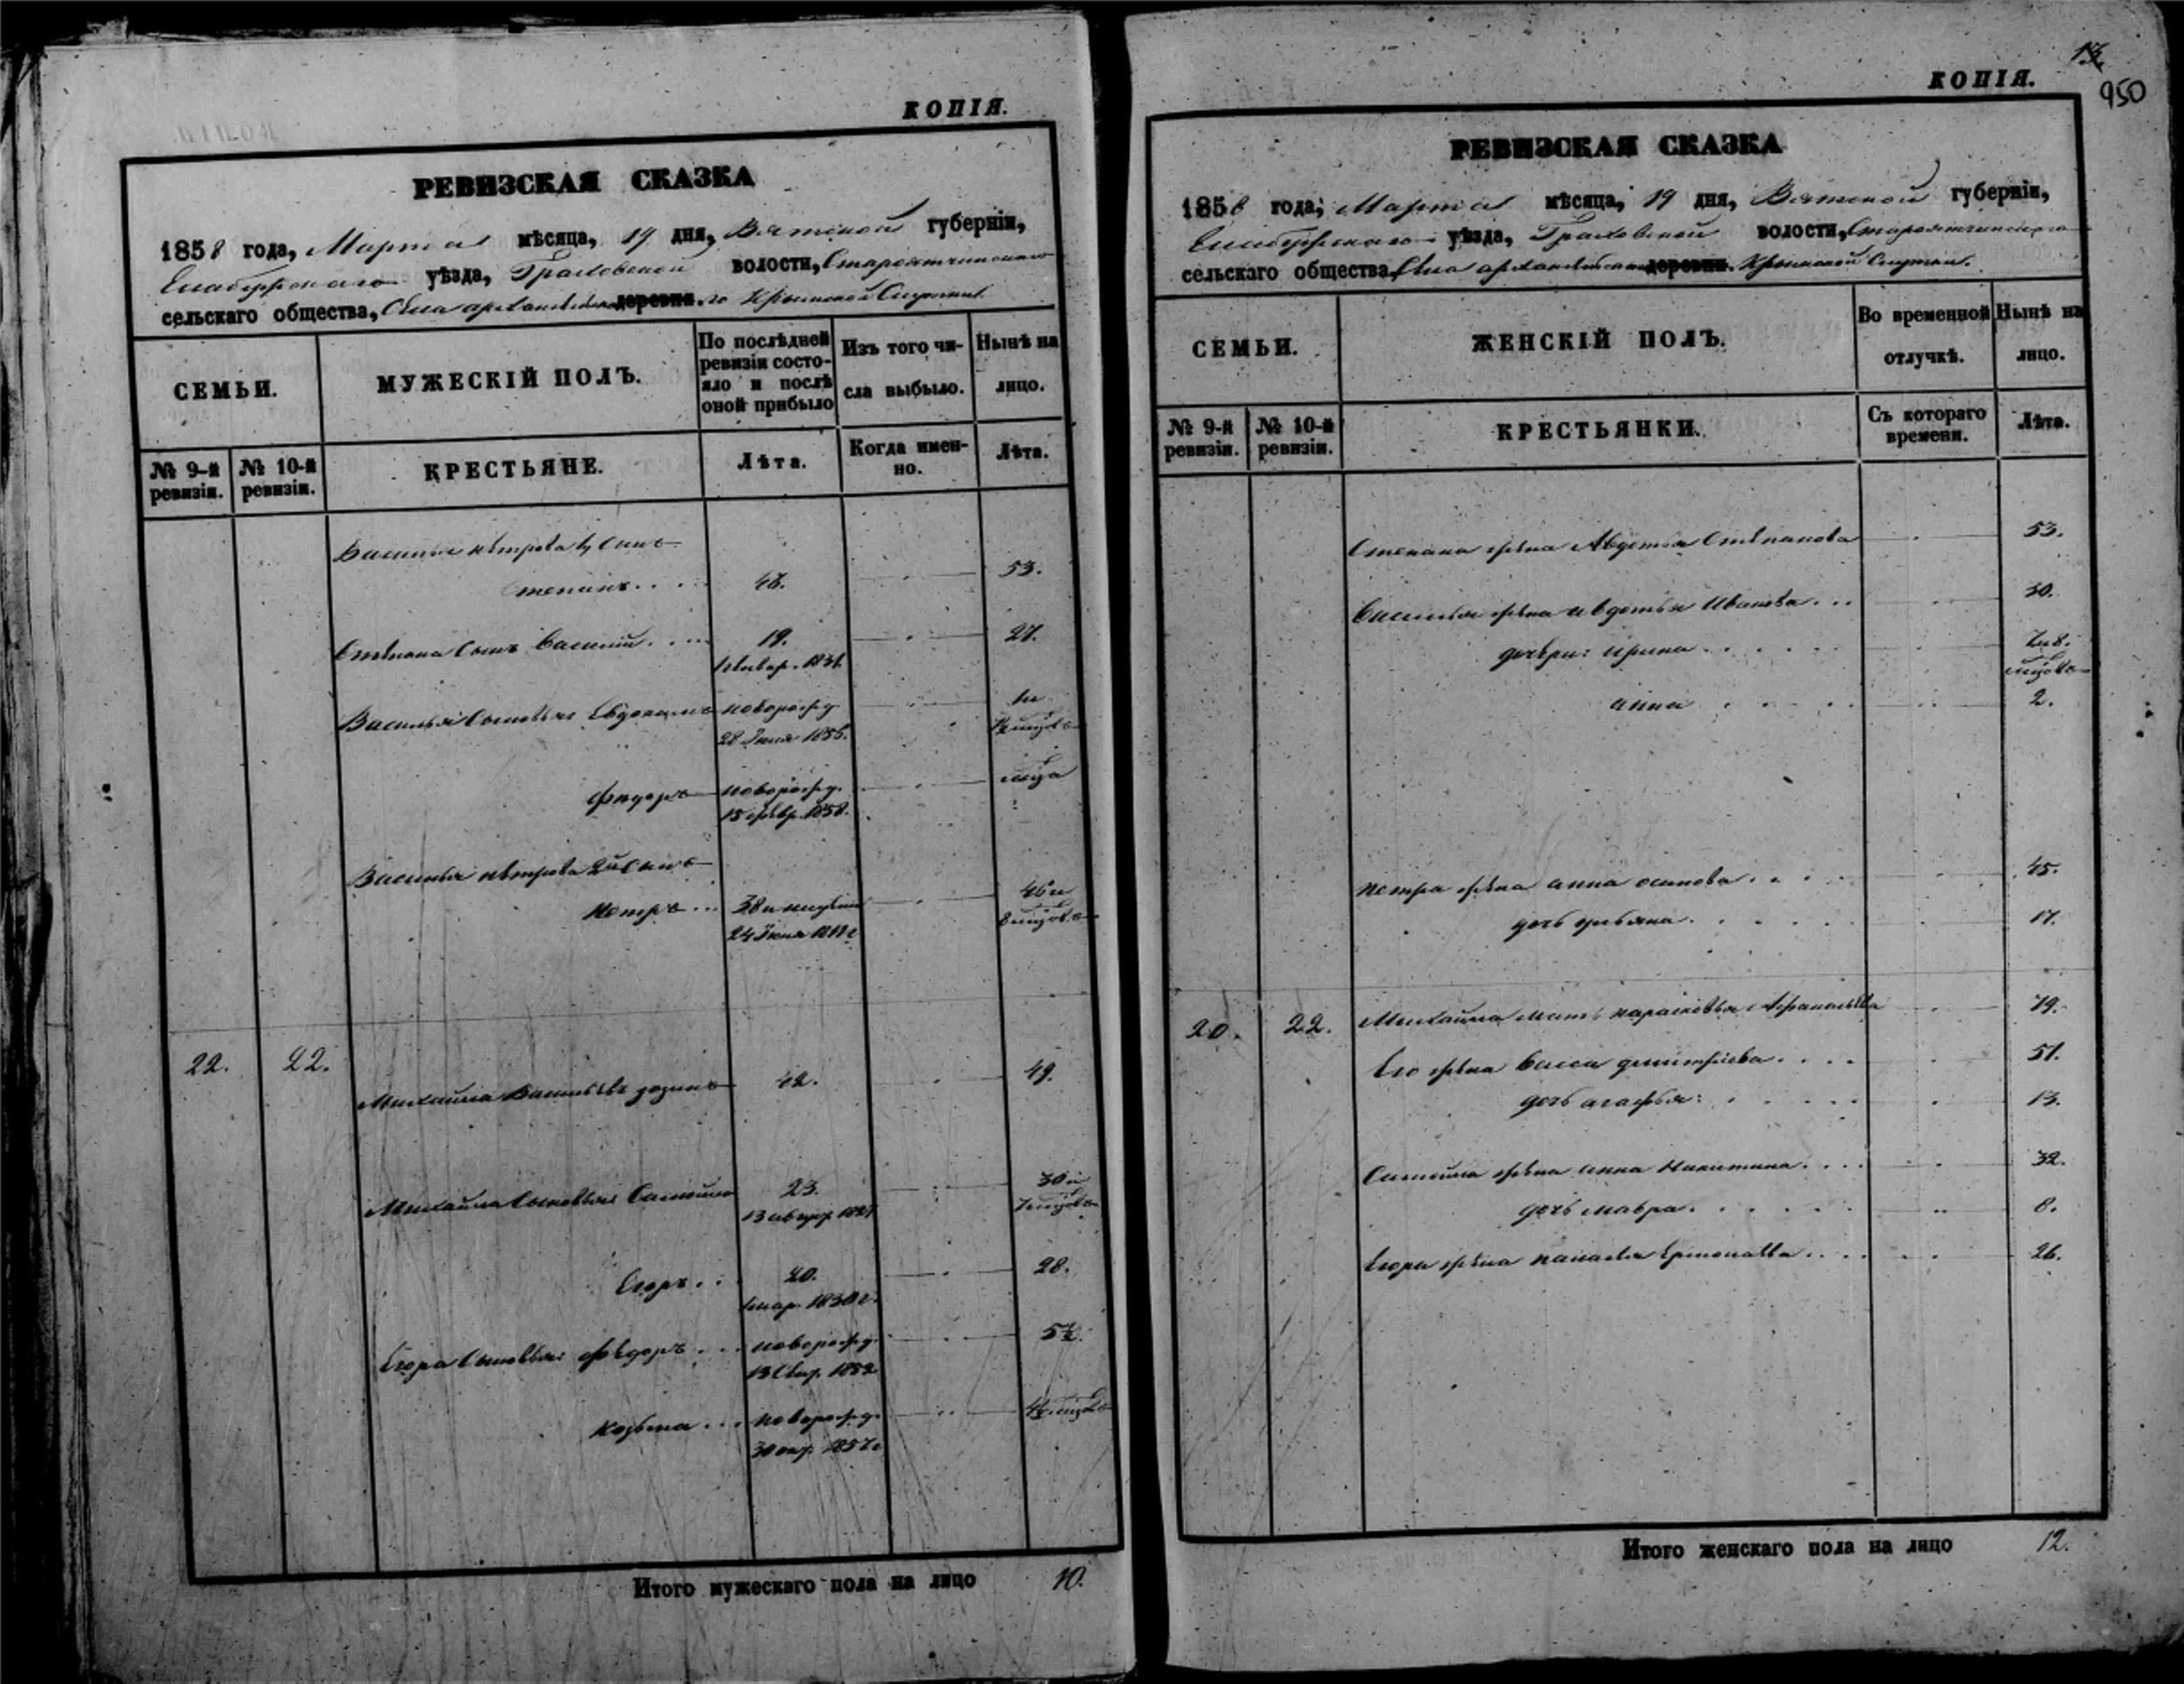 КОПІЯ.
РЕВИЗСКАЯ СКАЗКА
1858 года, Марта мѣсяца, 19 дня, Вятской губерніи,
Елабужскаго уѣзда, Граховской волости, Староятчинскаго
сельскаго общества, Села Крымской Слудки
СЕМЬИ.
МУЖЕСКІЙ ПОЛЪ.
По послѣдней ревизіи состояло и послѣ оной прибыло
Изъ того числа выбыло.
Нынѣ на лицо.
№ 9-й ревизіи.
№ 10-й ревизіи.
КРЕСТЬЯНЕ.
Лѣта.
Когда именно.
Лѣта.
Василья Петрова сынъ
Степанъ . . . . 53.
Степана сынъ Василий . . . . 19. 27.
Василья сыновья Евдокимъ новорожд.
28 Іюля 1856.
Фидоръ новорожд. мѣца
15 февр. 1858.
Василья Петрова 2й сынъ
Петръ . . . 38 и 46 и
24 Іюня 8 мѣцовъ
22. 22. Михаила Васильевъ 42. 49.
Михаила сыновья Самойло 23. 30 и
13 7 мѣцовъ
Егоръ . . 20. 28.
1830 г.
Егора сыновья Фѣдоръ . . . новорожд. 5½.
1852
Козьма . . . новорожд. мѣцовъ
30 окт. 1857 г
Итого мужескаго пола на лицо 10.
13
950
КОПІЯ.
РЕВИЗСКАЯ СКАЗКА
1858 года, Марта мѣсяца, 19 дня, Вятской губерніи,
Елабужскаго уѣзда, Граховской волости, Староятчинскаго
сельскаго общества, Села Крымской Слудки.
СЕМЬИ.
ЖЕНСКІЙ ПОЛЪ.
Во временной отлучкѣ.
Нынѣ на лицо.
№ 9-й ревизіи.
№ 10-й ревизіи.
КРЕСТЬЯНКИ.
Съ котораго времени.
Лѣта.
Степана жена Авдотья Степанова 53.
Василья жена Авдотья Иванова . . . 30.
дочери: Ирина . . . . . 7 и 8.
мѣцовъ
Анна . . . . . 2.
Петра жена Анна Осипова . . . . 45.
дочь Ульяна . . . . . 17.
20. 22. Михаила мать Парасковья Афанасьева 79.
Его жена Васса Дмитріева . . . . 51.
дочь Агафья: . . . . . 13.
Самойла жена Анна Никитина . . . . 32.
дочь Мавра . . . . . 8.
Егора жена Ермолаева . . . . 26.
Итого женскаго пола на лицо 12.